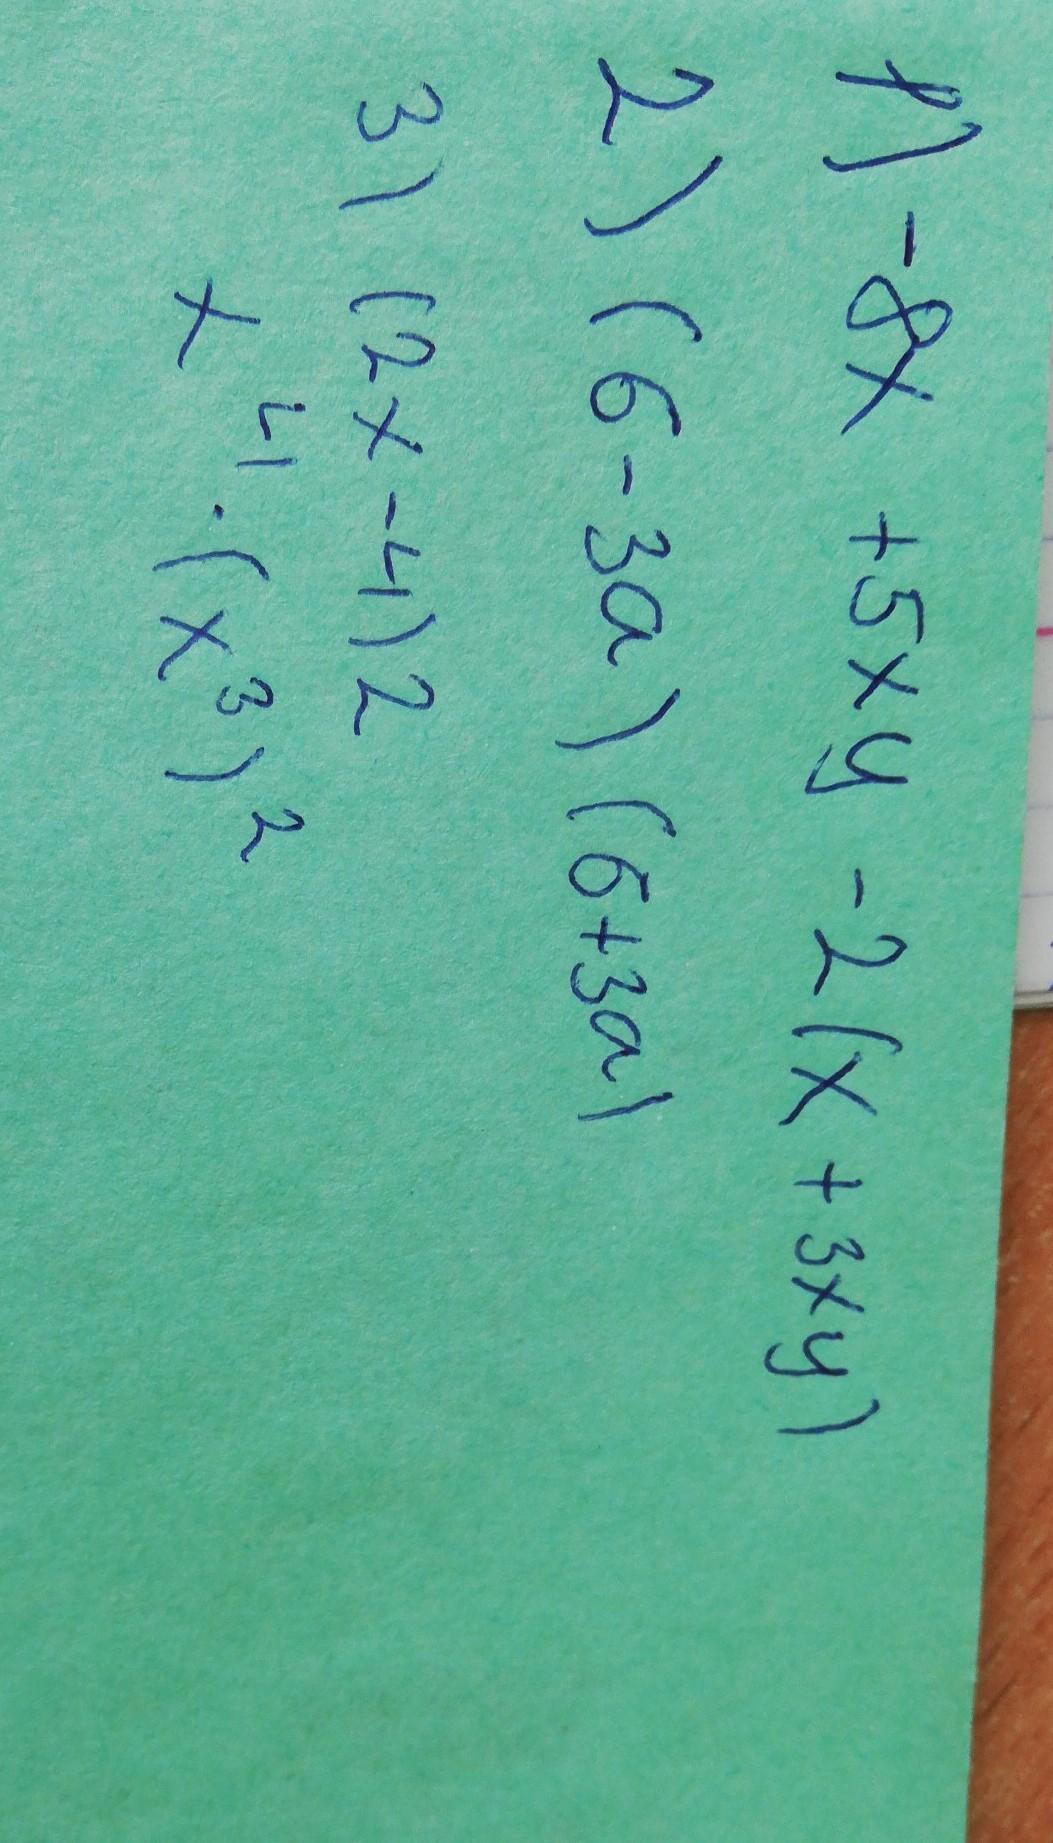 1) -8x +5xy -2(x+3xy)
2) (6-3a)(6+3a)
3) (2x-4)2
x⁴·(x³)²